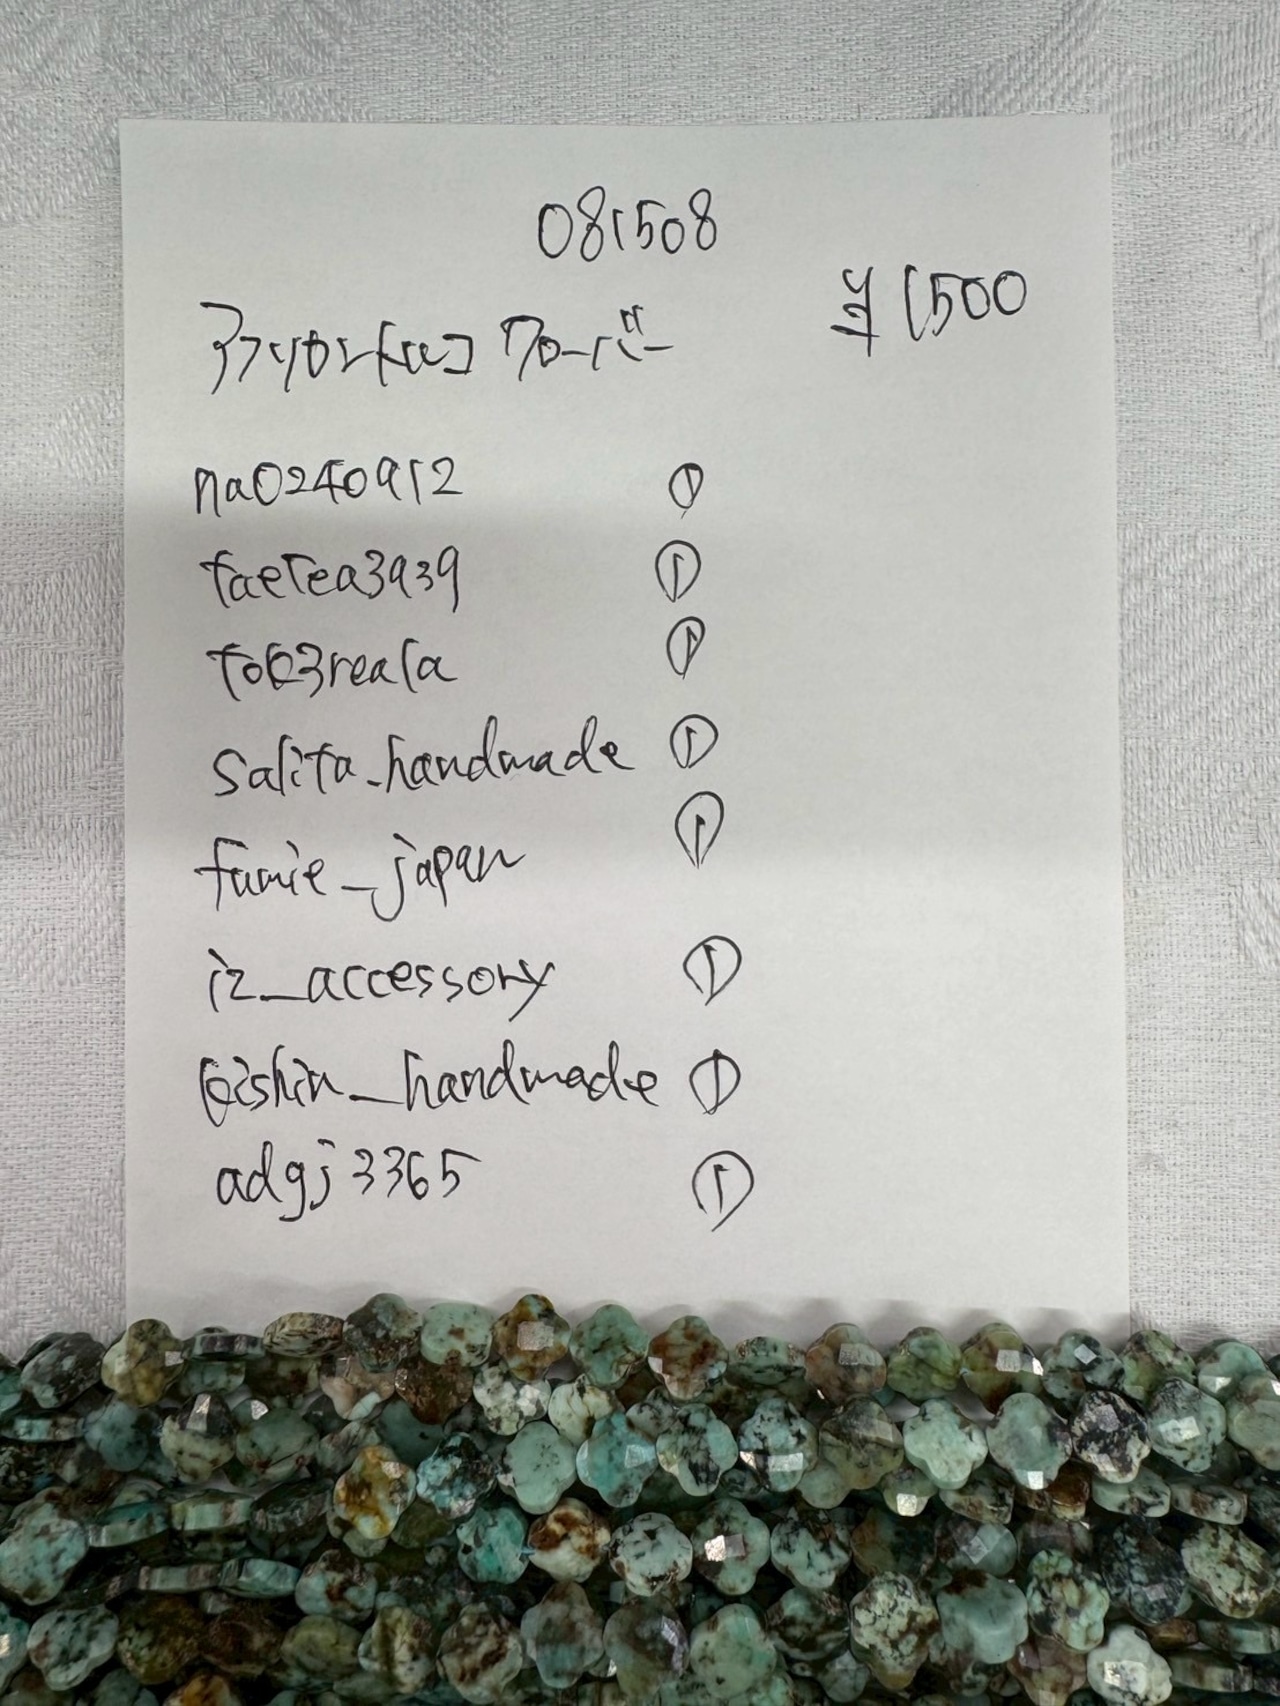 081508
¥1500
アフリカントルコ クローバー
na0240912 ①
taerea3939 ①
toko3reala ①
salita_handmade ①
fumie_japan ①
iz_accessory ①
keishin_handmade ①
adgj3365 ①